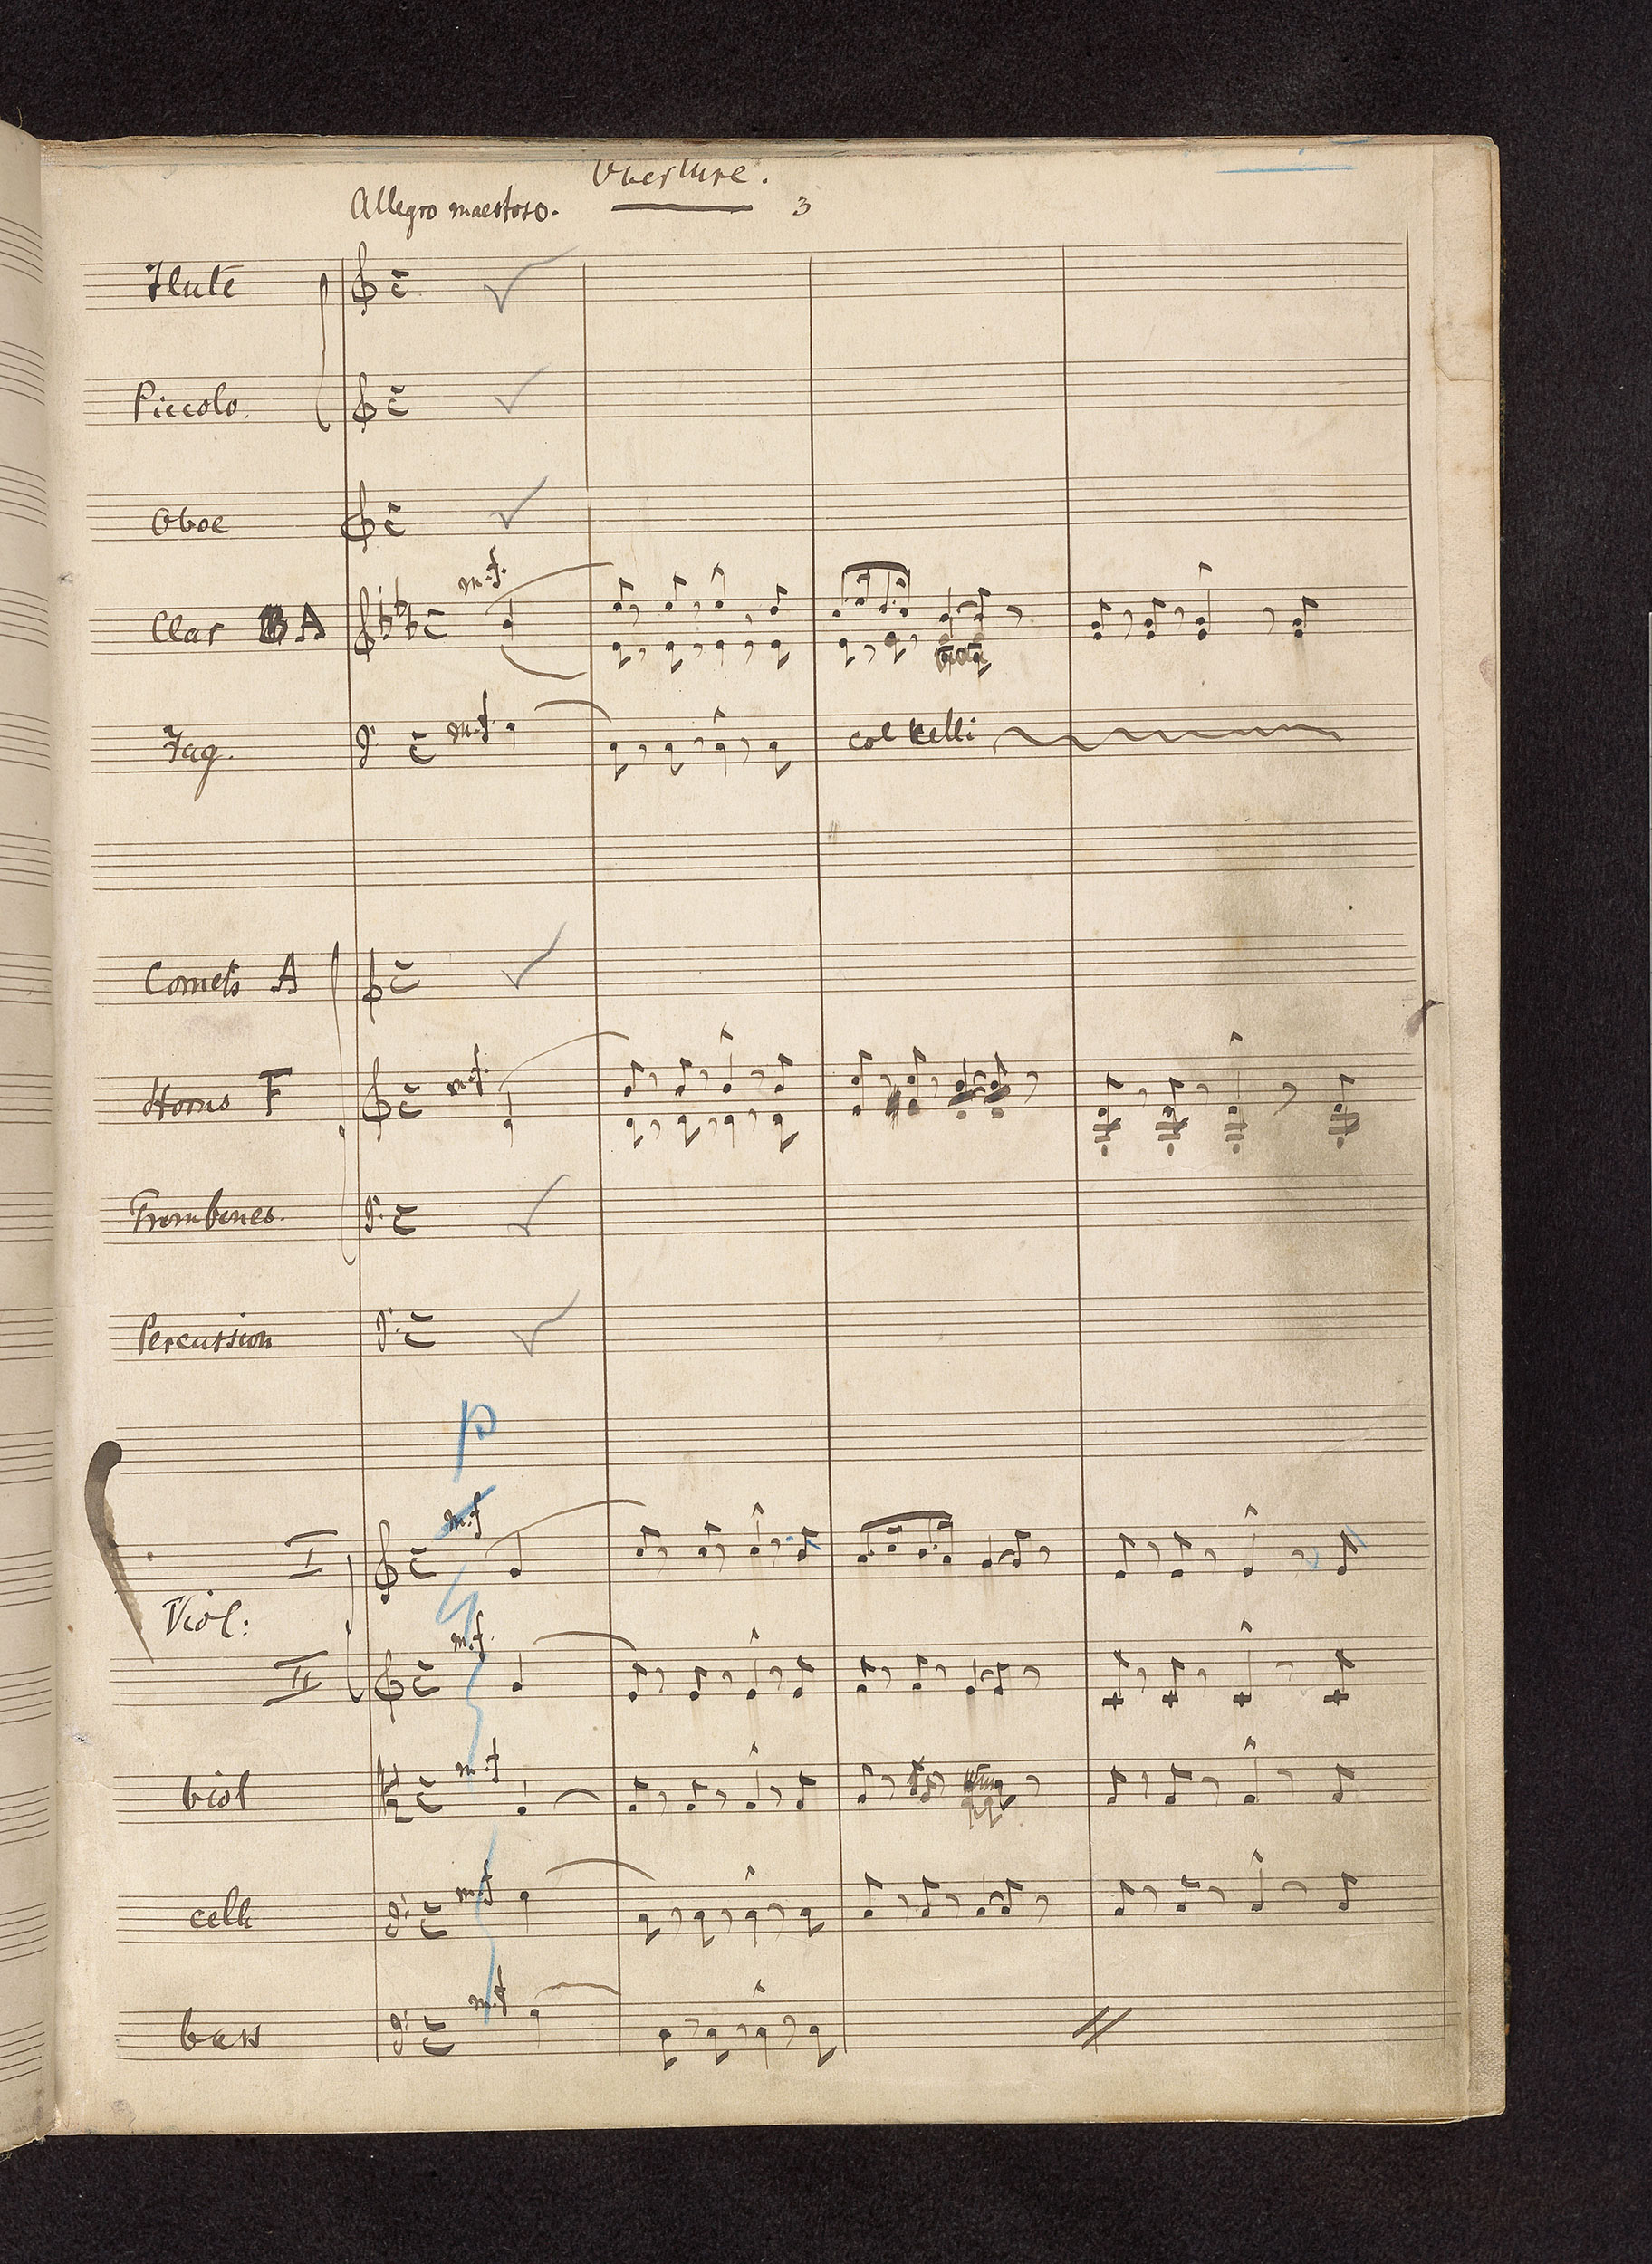 Overture.
Allegro maestoso.
3
Flute
Piccolo.
Oboe
m.f.
Clar A
Fag.
m.f.
col Celli
Cornets A
Horns F
m.f.
Trombones.
Percussion
p
m.f
I
Viol:
m.f.
II
m.f
viol
m.f
celli
m.f
bass